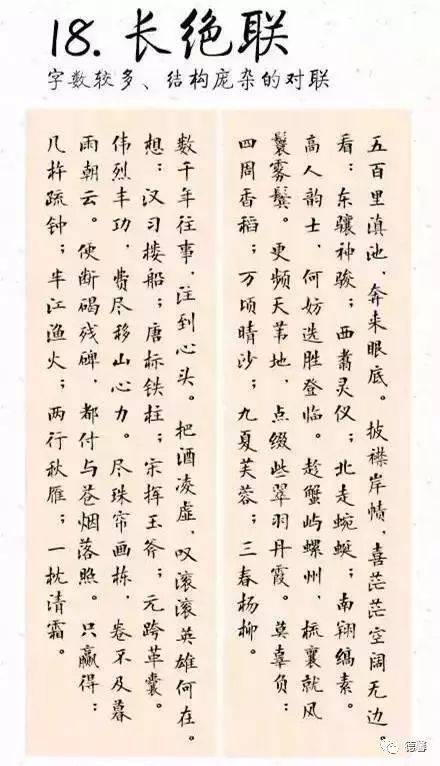 18. 长绝联
字数较多、结构庞杂的对联
五百里滇池、奔来眼底。披襟岸帻、喜茫茫空阔无边。
看:东骧神骏;西翥灵仪;北走蜿蜒;南翔缟素。
高人韵士、何妨选胜登临。趁蟹屿螺州、梳襄就风
鬟雾鬓。更频天苇地、点缀些翠羽丹霞。莫辜负:
四周香稻;万顷晴沙;九夏芙蓉;三春杨柳。
数千年往事、注到心头。把酒凌虚、叹滚滚英雄何在。
想:汉习楼船;唐标铁柱;宋挥玉斧;元跨革囊。
伟烈丰功、费尽移山心力。尽珠帘画栋、卷不及暮
雨朝云。便断碣残碑、都付与苍烟落照。只赢得:
几杵疏钟;半江渔火;两行秋雁;一枕清霜。
德馨